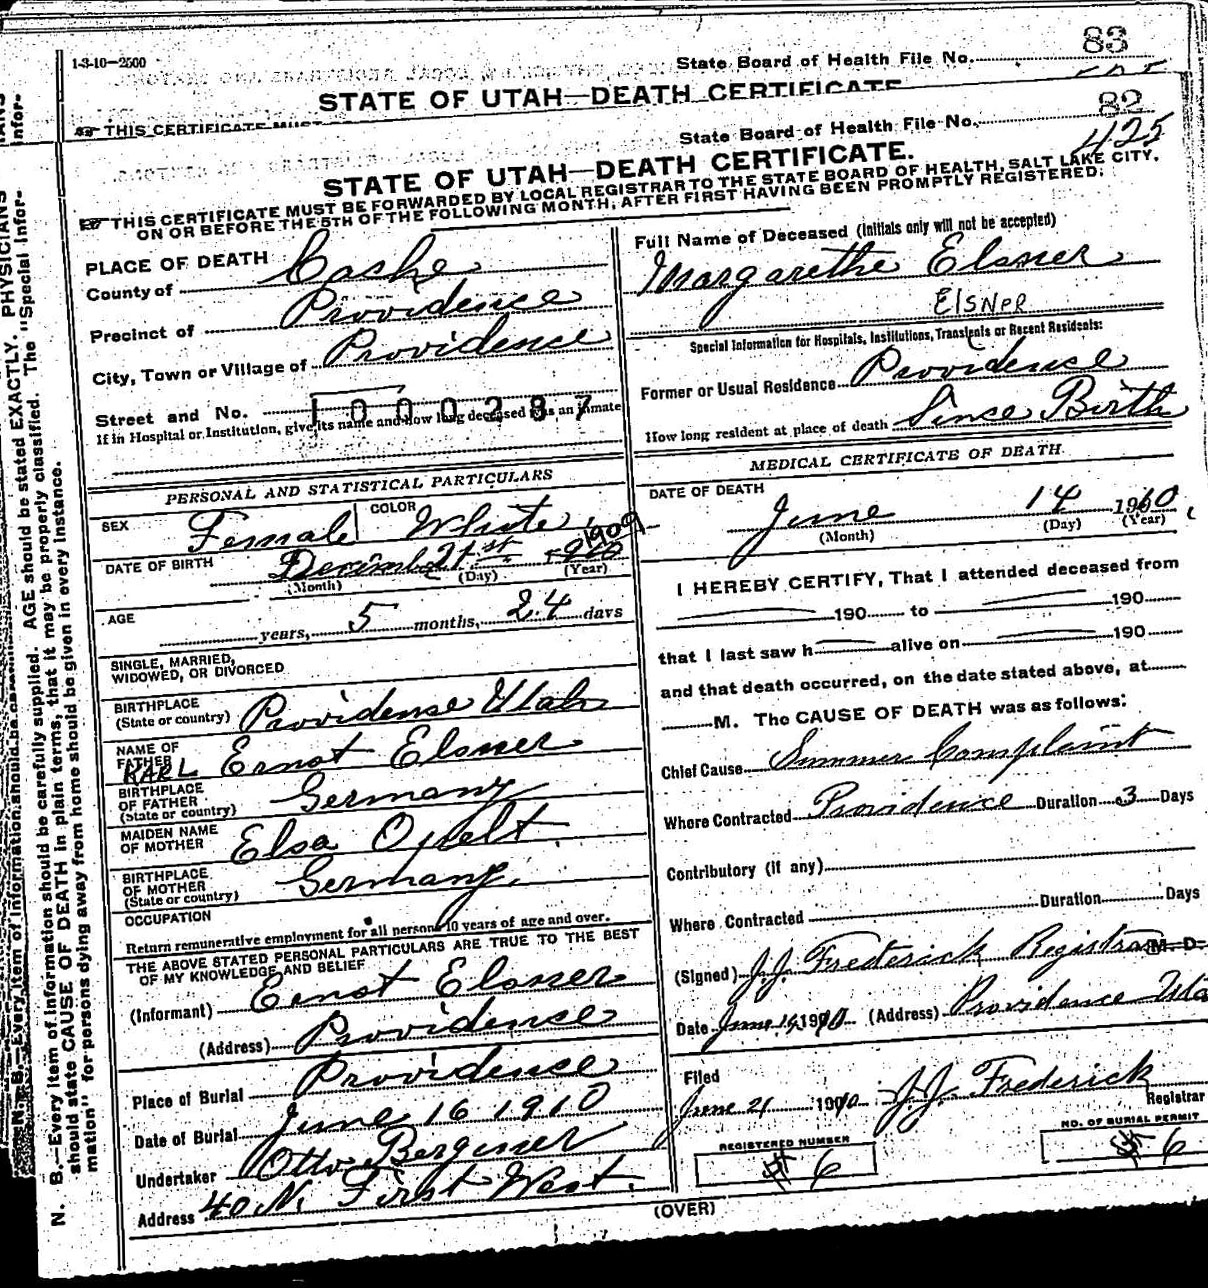 1-3-10—2500
State Board of Health File No. 83
STATE OF UTAH—DEATH CERTIFICATE
THIS CERTIFICATE MUST
State Board of Health File No. 82
425
STATE OF UTAH—DEATH CERTIFICATE.
THIS CERTIFICATE MUST BE FORWARDED BY LOCAL REGISTRAR TO THE STATE BOARD OF HEALTH, SALT LAKE CITY,
ON OR BEFORE THE 5TH OF THE FOLLOWING MONTH, AFTER FIRST HAVING BEEN PROMPTLY REGISTERED.
PLACE OF DEATH
County of Cache
Precinct of Providence
City, Town or Village of Providence
Street and No. 1000287
If in Hospital or Institution, give its name and how long deceased was an inmate
PERSONAL AND STATISTICAL PARTICULARS
SEX Female COLOR White
DATE OF BIRTH December 21st 1909
(Month) (Day) (Year)
AGE years, 5 months, 24 days
SINGLE, MARRIED,
WIDOWED, OR DIVORCED
BIRTHPLACE
(State or country) Providense Utah
NAME OF
FATHER KARL Ernst Elsner
BIRTHPLACE
OF FATHER
(State or country) Germany
MAIDEN NAME
OF MOTHER Elsa Opelt
BIRTHPLACE
OF MOTHER
(State or country) Germany.
OCCUPATION
Return remunerative employment for all persons 10 years of age and over.
THE ABOVE STATED PERSONAL PARTICULARS ARE TRUE TO THE BEST
OF MY KNOWLEDGE AND BELIEF
(Informant) Ernst Elsner
(Address) Providence
Place of Burial Providence
Date of Burial June 16 1910
Undertaker Otto Bergener
Address 40 N. First West.
Full Name of Deceased (Initials only will not be accepted)
Margarethe Elsner
ElSNER
Special Information for Hospitals, Institutions, Transients or Recent Residents:
Former or Usual Residence Providence
How long resident at place of death Since Birth
MEDICAL CERTIFICATE OF DEATH
DATE OF DEATH
June 14 1910
(Month) (Day) (Year)
I HEREBY CERTIFY, That I attended deceased from
190 to 190
that I last saw h alive on 190
and that death occurred, on the date stated above, at
M. The CAUSE OF DEATH was as follows:
Chief Cause Summer Complaint
Where Contracted Providence Duration 3 Days
Contributory (if any)
Where Contracted Duration Days
(Signed) J.J. Frederick Registrar M. D.
Date June 14 1910 (Address) Providence Uta
Filed
June 21 1910 J.J. Frederick
Registrar
REGISTERED NUMBER
6
NO. OF BURIAL PERMIT
6
(OVER)
N. B.—Every item of information should be carefully supplied. AGE should be stated EXACTLY. PHYSICIANS
should state CAUSE OF DEATH in plain terms, that it may be properly classified. The "Special Infor-
mation" for persons dying away from home should be given in every instance.